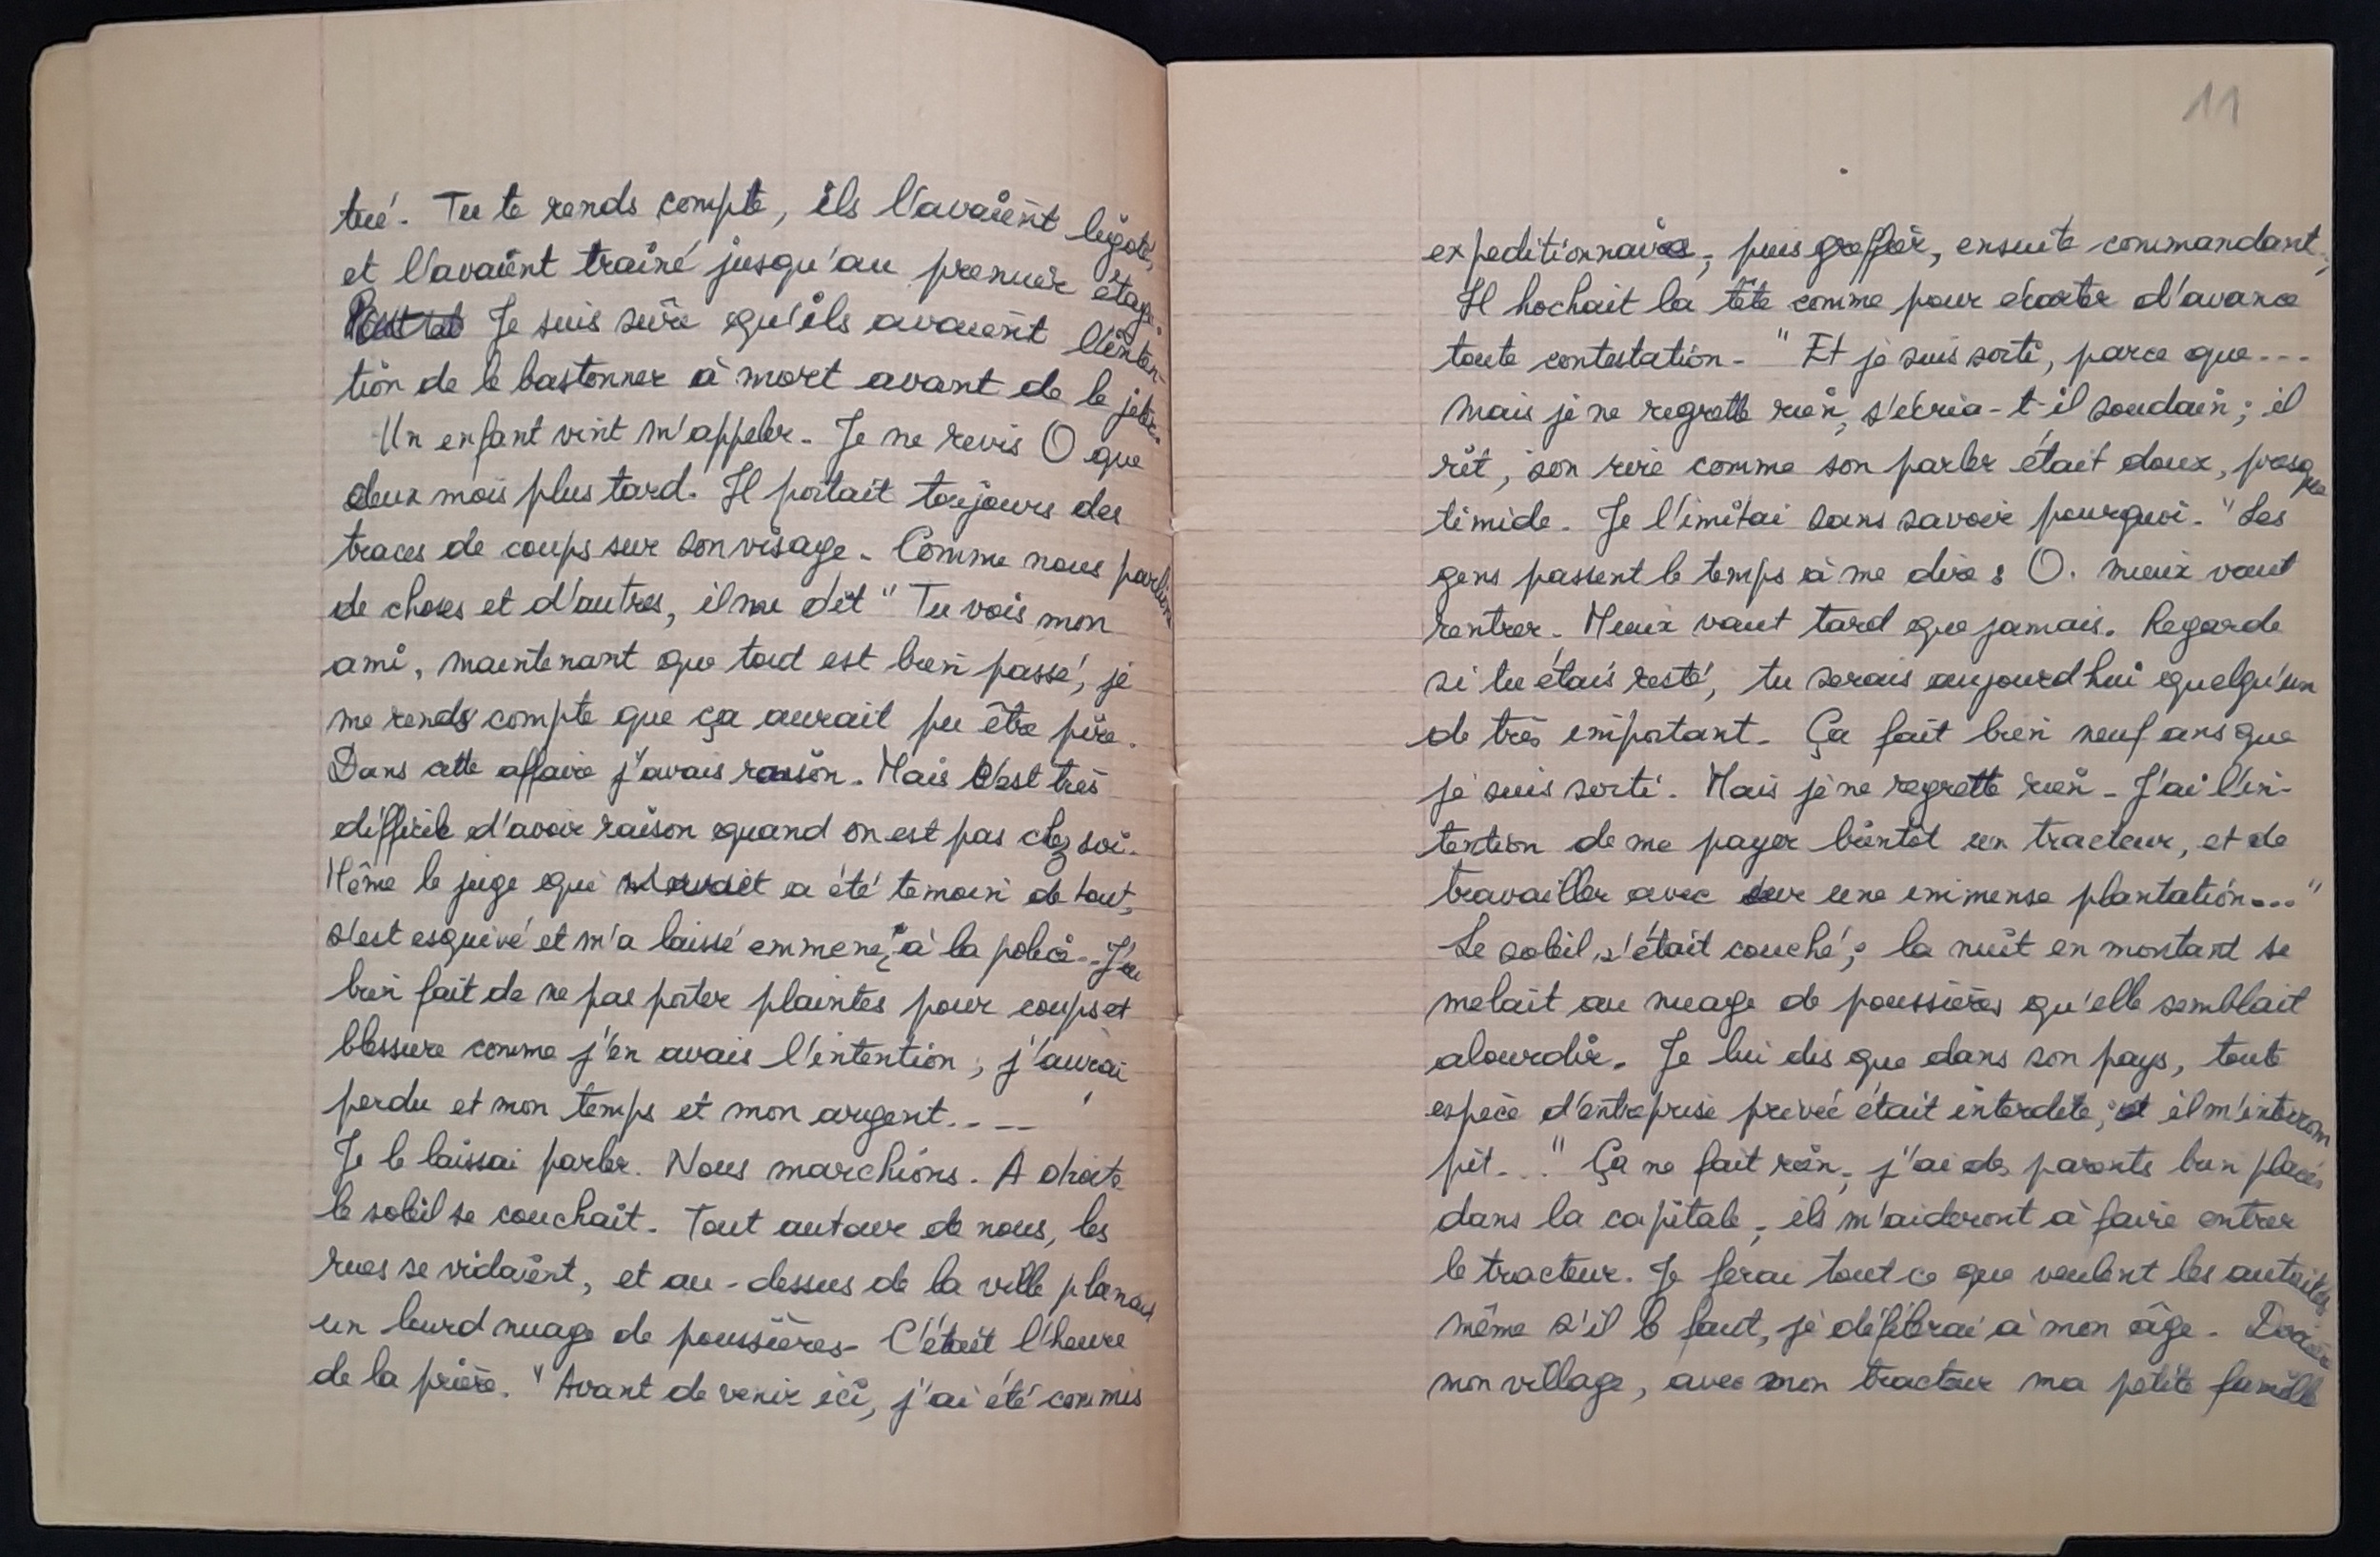 tué. Tu te rends compte, ils l'avaient ligoté,
et l'avaient traîné jusqu'au premier étage.
Je suis sûre qu'ils avaient l'inten-
tion de le bastonner à mort avant de le jeter.
Un enfant vint m'appeler. Je ne revis O que
deux mois plus tard. Il portait toujours des
traces de coups sur son visage. Comme nous parlions
de choses et d'autres, il me dit "Tu vois mon
ami, maintenant que tout est bien passé, je
me rends compte que ça aurait pu être pire.
Dans cette affaire j'avais raison. Mais c'est très
difficile d'avoir raison quand on est pas chez soi.
Même le juge qui a été temoin de tout,
s'est esquivé et m'a laissé emmener à la police.. J'ai
bien fait de ne pas porter plaintes pour coups et
blessure comme j'en avais l'intention ; j'aurai
perdu et mon temps et mon argent....
Je le laissai parler. Nous marchions. A droite
le soleil se couchait. Tout autour de nous, les
rues se vidaient, et au-dessus de la ville planait
un lourd nuage de poussières. C'était l'heure
de la prière. "Avant de venir ici, j'ai été commis
11
expeditionnaire, puis greffier, ensuite commandant.,
Il hochait la tête comme pour écarter d'avance
toute contestation. "Et je suis sorti, parce que...
mais je ne regrette rien, s'écria-t-il soudain ; il
rit, son rire comme son parler était doux, presque
timide. Je l'imitai sans savoir pourquoi. "Les
gens passent le temps à me dire : O. mieux vaut
rentrer. Mieux vaut tard que jamais. Regarde
si tu étais resté, tu serais aujourd'hui quelqu'un
de très important. Ça fait bien neuf ans que
je suis sorti. Mais je ne regrette rien. J'ai l'in-
tention de me payer bientôt un tracteur, et de
travailler avec sur une immense plantation..."
Le soleil s'était couché ; la nuit en montant se
melait au nuage de poussières qu'elle semblait
alourdir. Je lui dis que dans son pays, toute
espèce d'entreprise privée était interdite ; et il m'interrom
pit... "Ça ne fait rien, j'ai des parents bien placés
dans la capitale, ils m'aideront à faire entrer
le tracteur. Je ferai tout ce que veulent les autorités,
même s'il le faut, je défilerai à mon âge.
mon village, avec mon tracteur ma petite famille